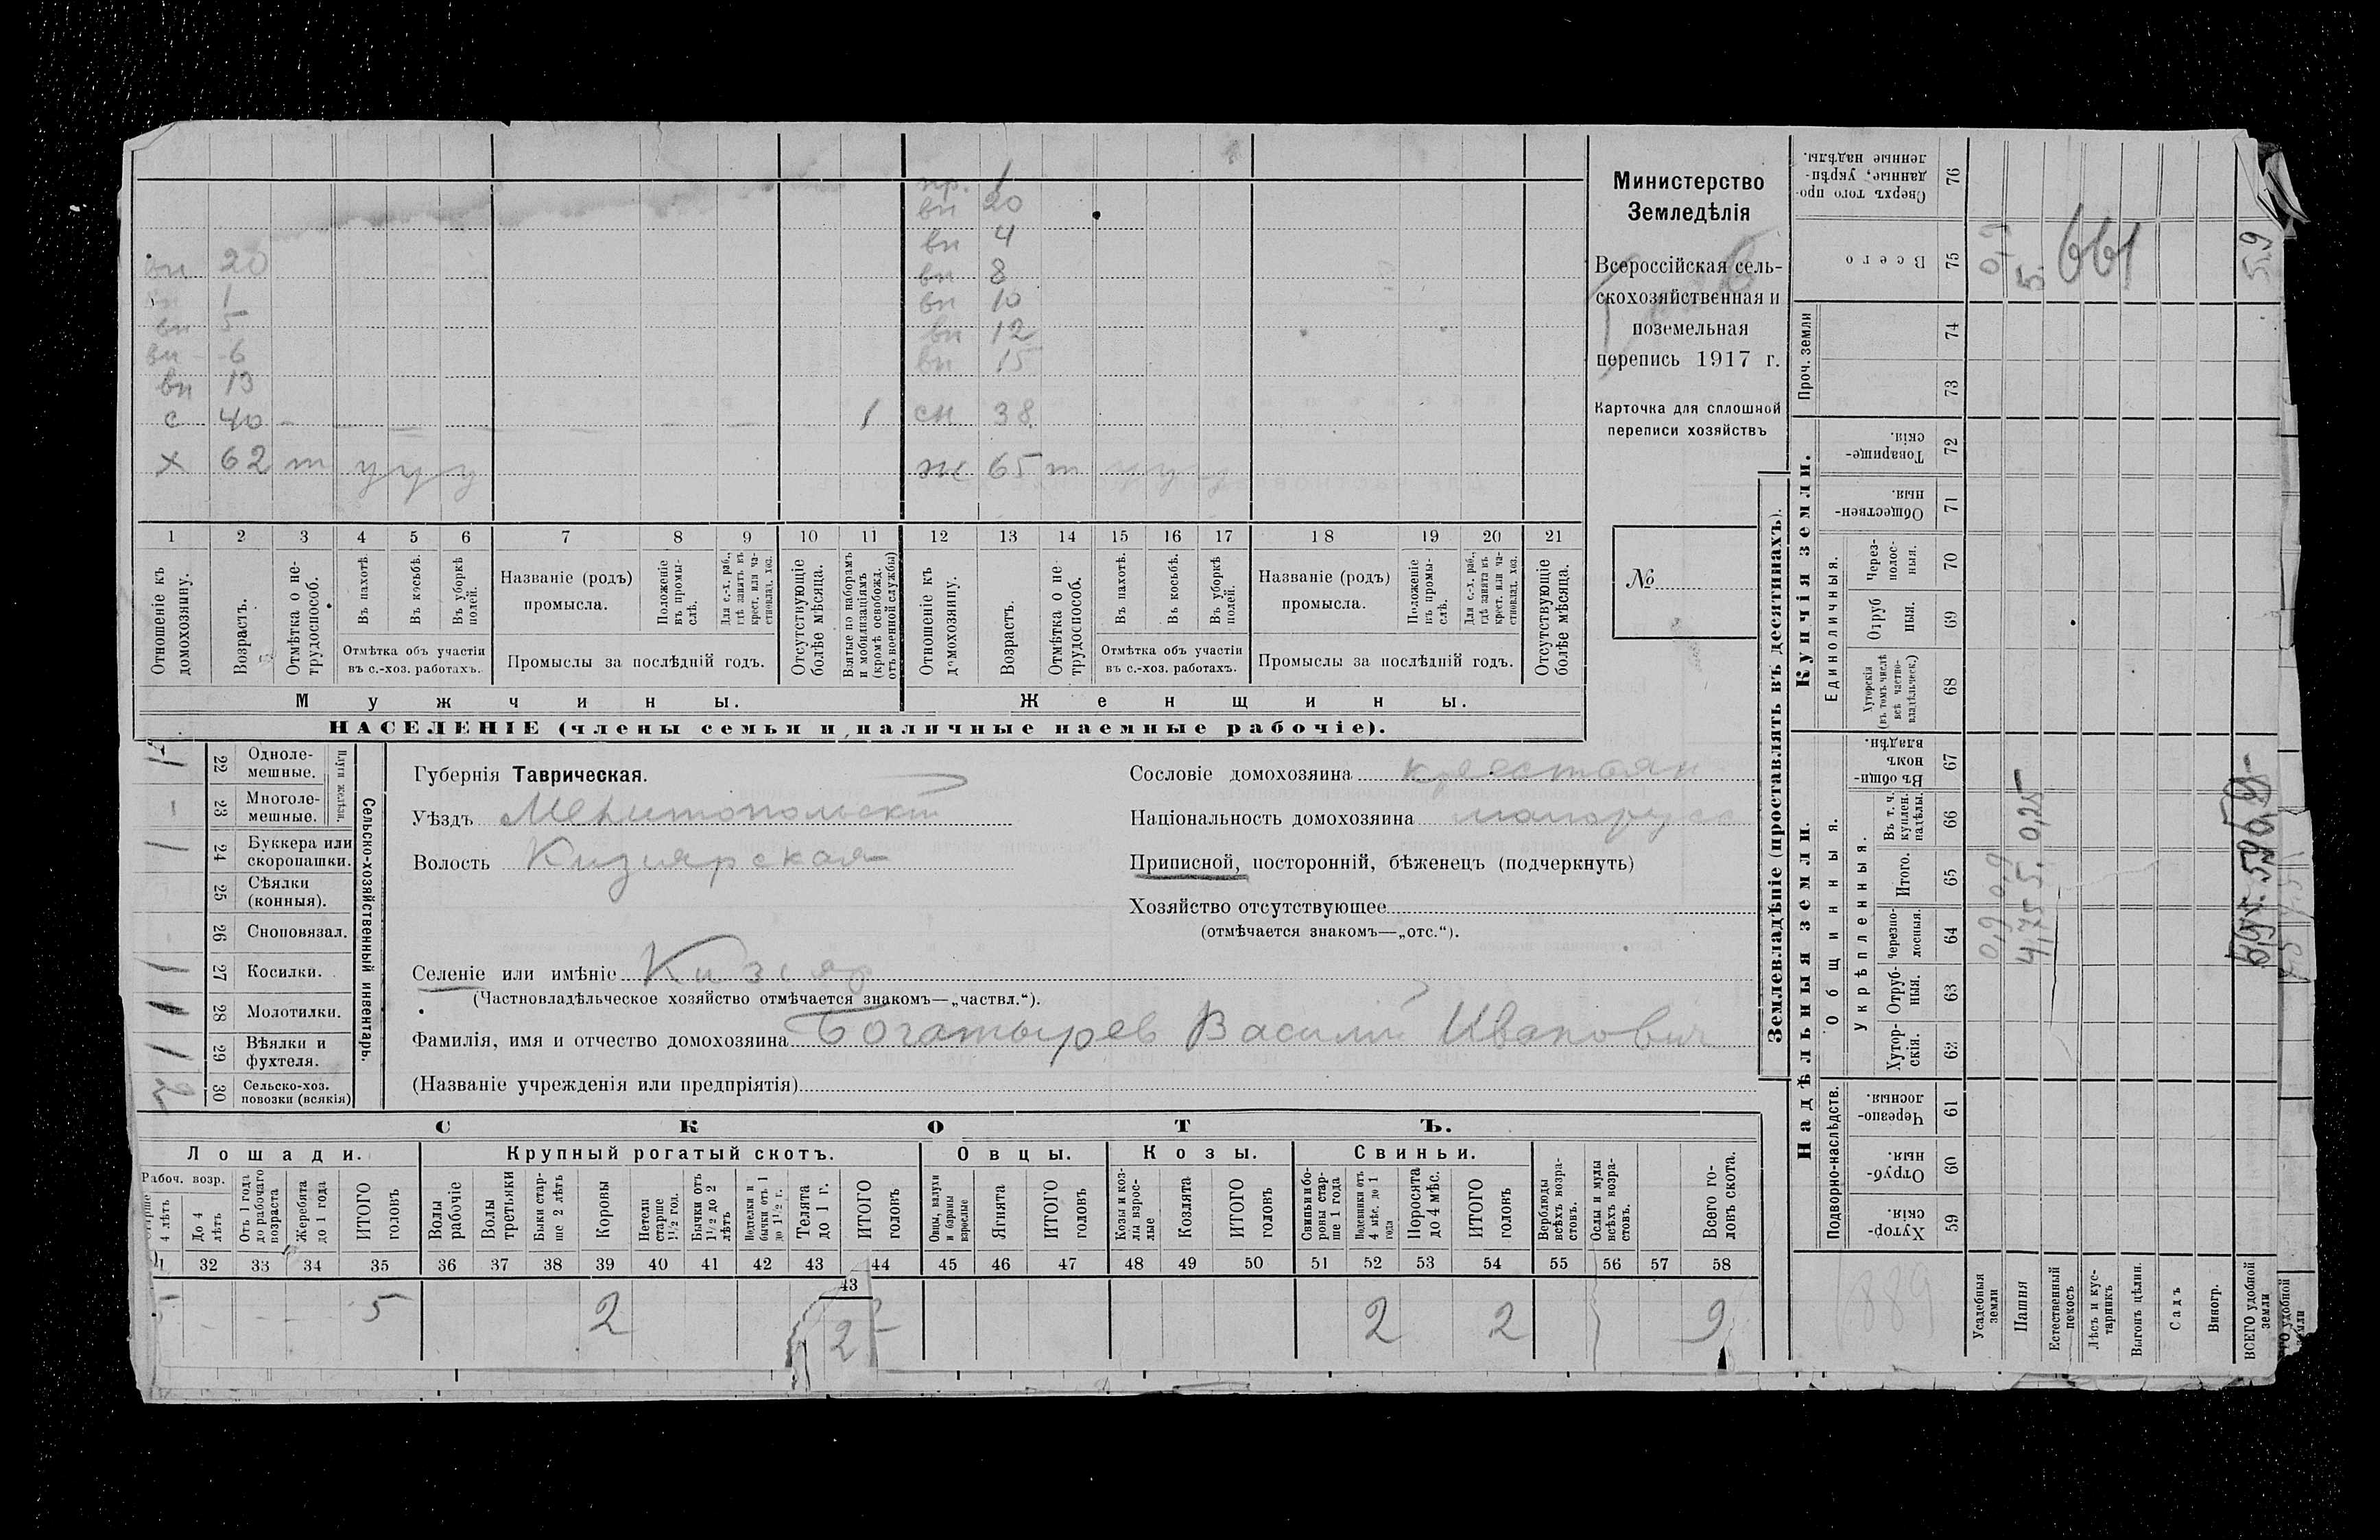 пр. 1
вн 20
вн 4
вн 20 вн 8
вн 1 вн 10
вн 5 вн 12
вн 6 вн 15
вн 13
с 40 – 1 сн 38
х 62 т у у у ж 65 т у у у
1 2 3 4 5 6 7 8 9 10 11 12 13 14 15 16 17 18 19 20 21
Отношеніе къ домохозяину.
Возрастъ.
Отмѣтка о не-трудоспособ.
Въ пахотѣ.
Въ косьбѣ.
Въ уборкѣ полей.
Отмѣтка объ участіи въ с.-хоз. работахъ.
Названіе (родъ) промысла.
Положеніе въ промы-слѣ.
Для с.-х. раб., гдѣ занятъ въ крест. или ча-стновлад. хоз.
Промыслы за послѣдній годъ.
Отсутствующіе болѣе мѣсяца.
Взятые по наборамъ и мобилизаціямъ (кромѣ освобожд. отъ военной службы)
Отношеніе къ домохозяину.
Возрастъ.
Отмѣтка о не трудоспособ.
Въ пахотѣ.
Въ косьбѣ.
Въ уборкѣ полей.
Отмѣтка объ участіи въ с.-хоз. работахъ.
Названіе (родъ) промысла.
Положеніе въ промы-слѣ.
Для с.-х. раб., гдѣ занята въ крест. или ча-стновлад. хоз.
Промыслы за послѣдній годъ.
Отсутствующіе болѣе мѣсяца.
Мужчины. Женщины.
НАСЕЛЕНІЕ (члены семьи и наличные наемные рабочіе).
Министерство
Земледѣлія
Всероссійская сель-
скохозяйственная и
поземельная
перепись 1917 г.
Карточка для сплошной
переписи хозяйствъ
№
22 Одноле-мешные.
23 Многоле-мешные.
Плуги желѣзн.
24 Буккера или скоропашки.
25 Сѣялки (конныя).
26 Сноповязал.
27 Косилки.
28 Молотилки.
29 Вѣялки и фухтеля.
30 Сельско-хоз. повозки (всякія)
Сельско-хозяйственный инвентарь.
Губернія Таврическая.
Уѣздъ Мелитопольскій
Волость Кизиярская
Сословіе домохозяина крестьян
Національность домохозяина малорусс
Приписной, посторонній, бѣженецъ (подчеркнуть)
Хозяйство отсутствующее
(отмѣчается знакомъ—„отс.“).
Селеніе или имѣніе Кизияр
(Частновладѣльческое хозяйство отмѣчается знакомъ—„частвл.“).
Фамилія, имя и отчество домохозяина Богатырев Василий Иванович
(Названіе учрежденія или предпріятія)
СКОТЪ.
Лошади. Крупный рогатый скотъ. Овцы. Козы. Свиньи.
Рабоч. возр.
4 лѣтъ
До 4 лѣтъ
Отъ 1 года до рабочаго возраста
Жеребята до 1 года
ИТОГО головъ
Волы рабочіе
Волы третьяки
Быки стар-ше 2 лѣтъ
Коровы
Нетели старше 1½ год.
Бычки отъ 1½ до 2 лѣтъ
Подтелки и бычки отъ 1 до 1½ г.
Телята до 1 г.
ИТОГО головъ
Овцы, валухи и бараны взрослые
Ягнята
ИТОГО головъ
Козы и коз-лы взрос-лые
Козлята
ИТОГО головъ
Свиньи и бо-ровы стар-ше 1 года
Подсвинки отъ 4 мѣс. до 1 года
Поросята до 4 мѣс.
ИТОГО головъ
Верблюды всѣхъ возра-стовъ.
Ослы и мулы всѣхъ возра-стовъ.
Всего го-ловъ скота.
32 33 34 35 36 37 38 39 40 41 42 43 44 45 46 47 48 49 50 51 52 53 54 55 56 57 58
43
5 5 2 2 2 2 9
Землевладѣніе (проставлять въ десятинахъ).
Купчія земли.
Надѣльныя земли.
Сверхъ того про-данные, укрѣп-ленные надѣлы. 76
Всего 75
Проч. земли 74 73
Товарище-скія. 72
Обществен-ныя. 71
Единоличныя.
Через-полос-ныя. 70
Отруб ныя. 69
Хуторскія (въ томъ числѣ всѣ частно-владѣльческ.) 68
Общинныя.
Въ общи-номъ владѣн. 67
Укрѣпленныя.
Въ т. ч. куплен. надѣлы. 66
Итого. 65
Черезпо-лосныя. 64
Отруб-ныя. 63
Хутор-скія. 62
Подворно-наслѣдств.
Черезпо-лосныя. 61
Отруб-ныя. 60
Хутор-скія. 59
Усадебныя земли 0,9 0,9 0,9
Пашня 4,75 5. 0,25 5.
Естественный покосъ
Лѣсъ и кус-тарникъ
Выгонъ цѣлин.
Садъ
Виногр.
ВСЕГО удобной земли 5,9
661
1889